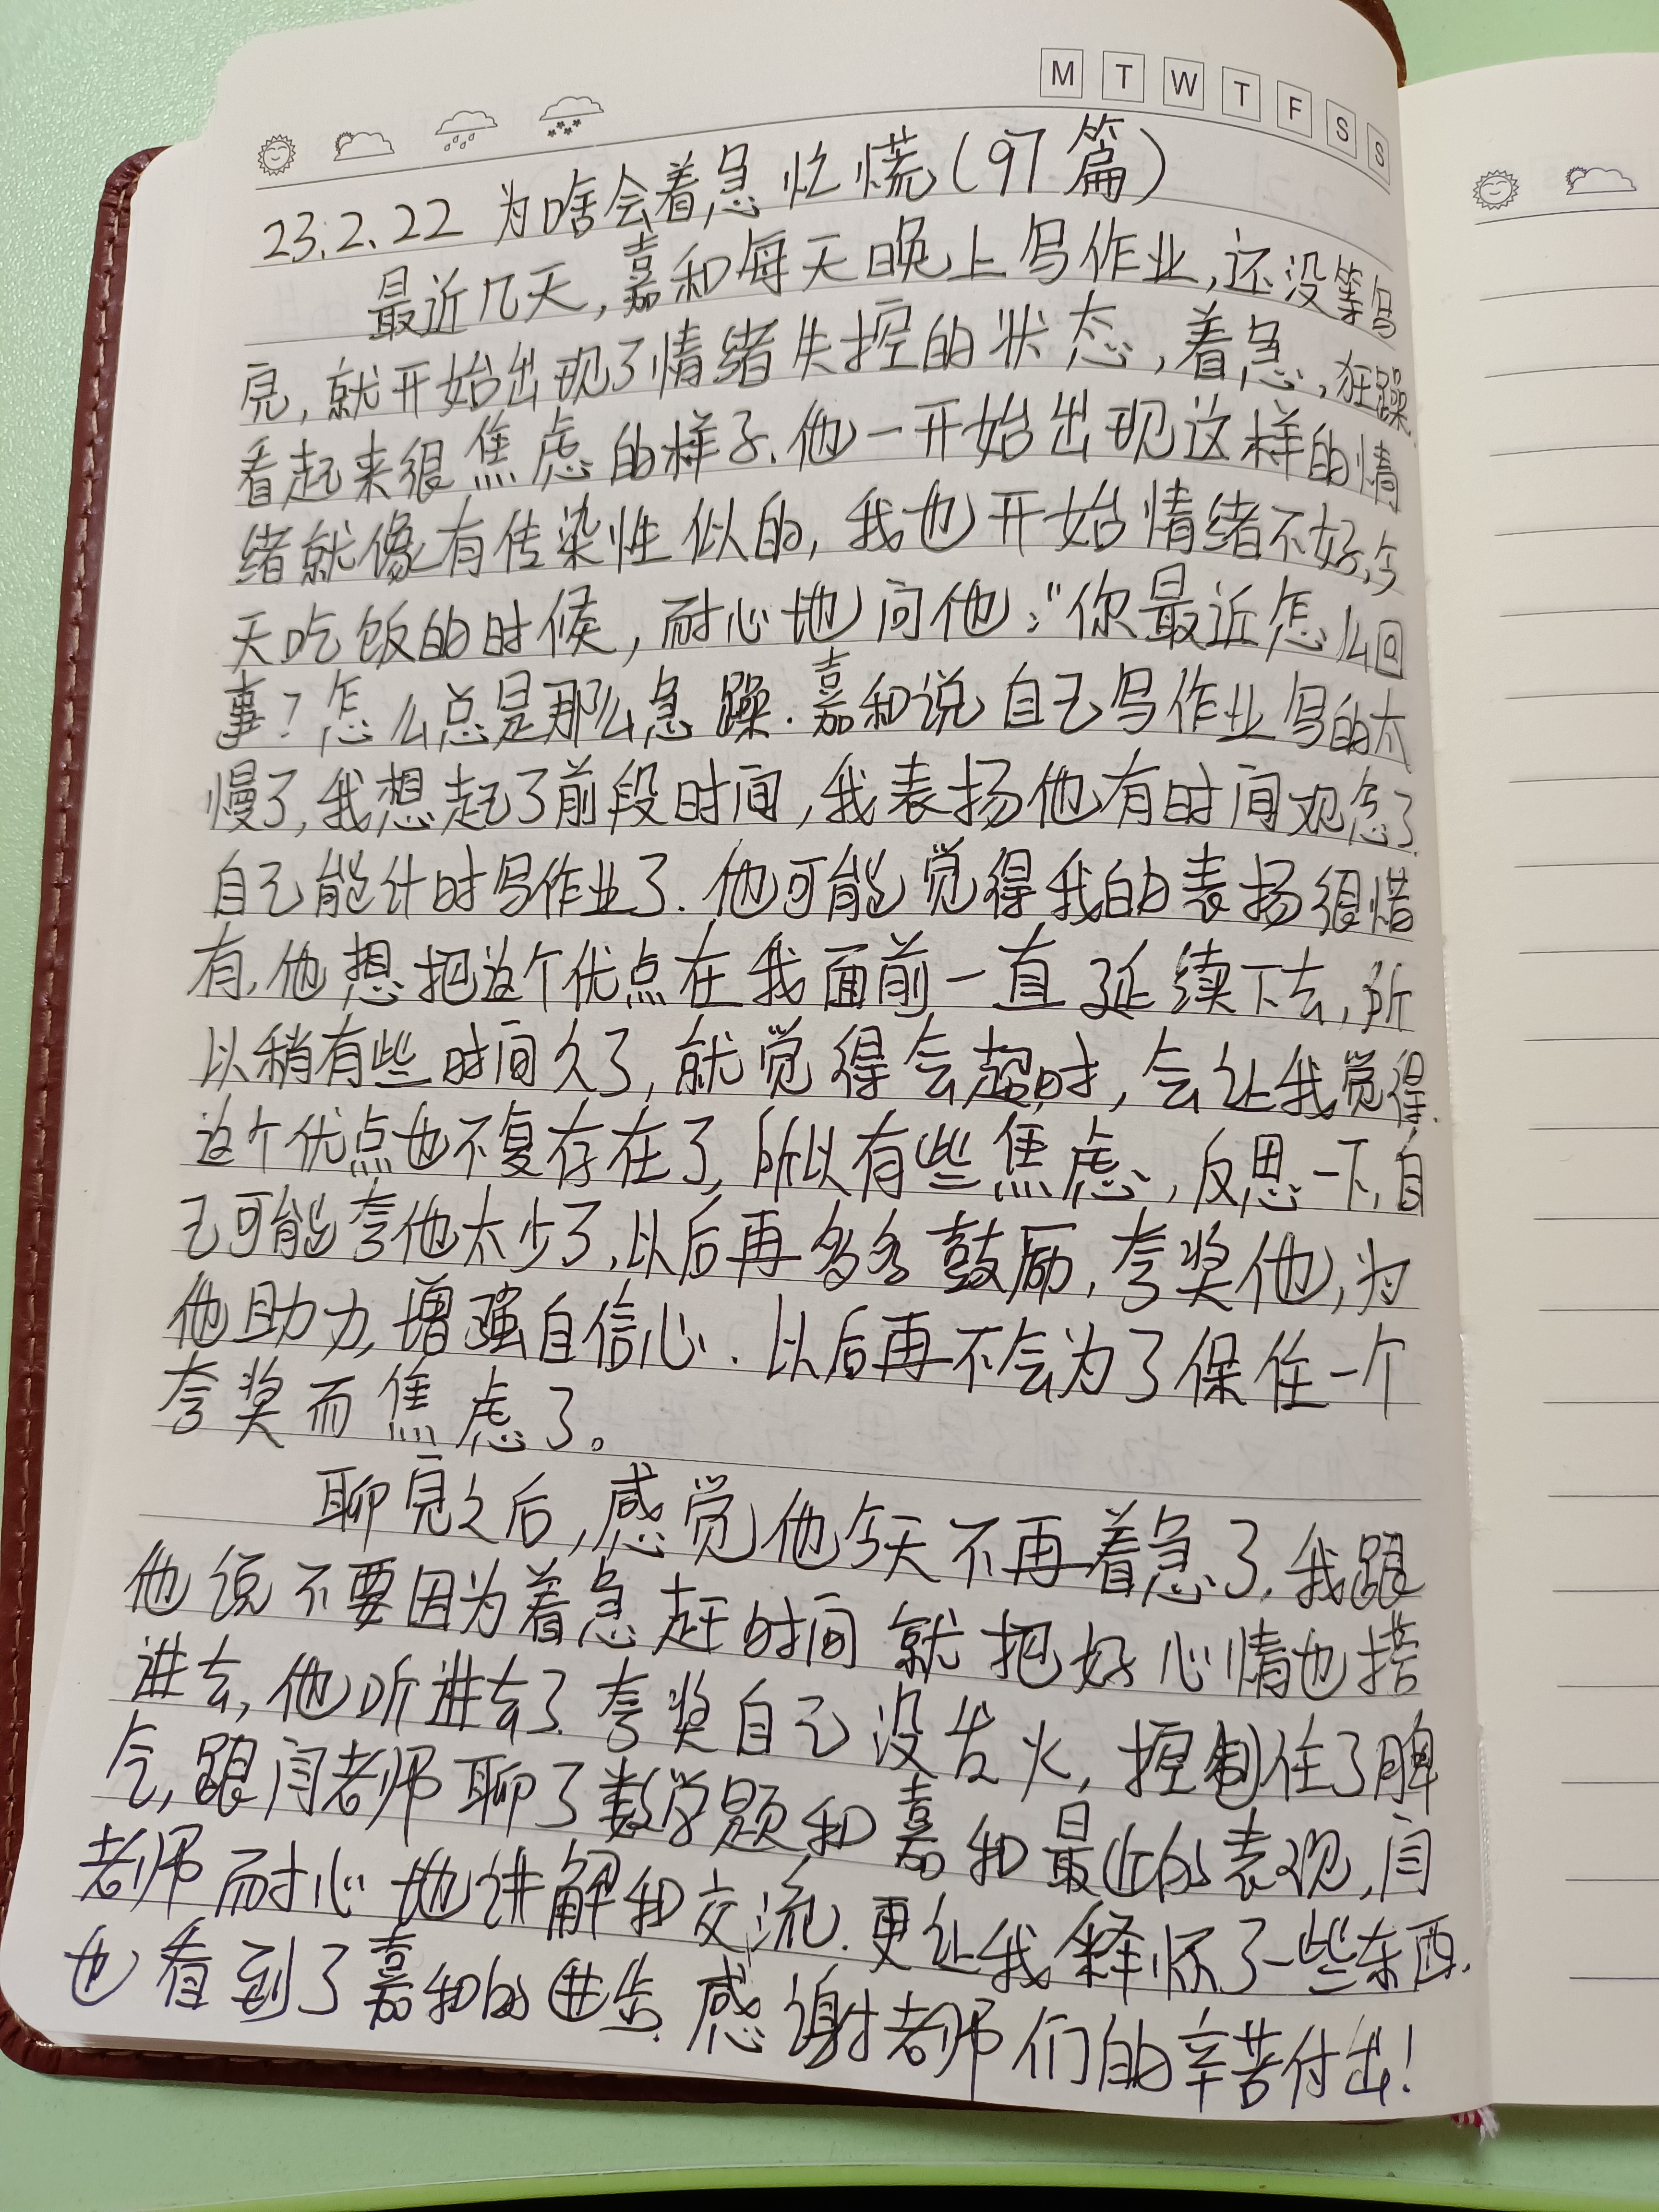 M T W T F S S
23.2.22 为啥会着急忙慌(97篇)
最近几天,嘉和每天晚上写作业,还没等写
完,就开始出现了情绪失控的状态,着急,狂躁.
看起来很焦虑的样子.他一开始出现这样的情
绪就像有传染性似的,我也开始情绪不好,今
天吃饭的时候,耐心地问他:“你最近怎么回
事?怎么总是那么急躁.嘉和说自己写作业写的太
慢了,我想起了前段时间,我表扬他有时间观念了.
自己能计时写作业了.他可能觉得我的表扬很惜
有.他想把这个优点在我面前一直延续下去,所
以稍有些时间久了,就觉得会超时,会让我觉得.
这个优点也不复存在了,所以有些焦虑,反思一下,自
己可能夸他太少了.以后再多多鼓励,夸奖他,为
他助力,增强自信心.以后再不会为了保住一个
夸奖而焦虑了。
聊完之后,感觉他今天不再着急了.我跟
他说不要因为着急赶时间就把好心情也搭
进去,他听进去了.夸奖自己没发火,控制住了脾
气,跟闫老师聊了数学题和嘉和最近的表现,闫
老师耐心地讲解和交流.更让我释怀了一些东西.
也看到了嘉和的进步.感谢老师们的辛苦付出!